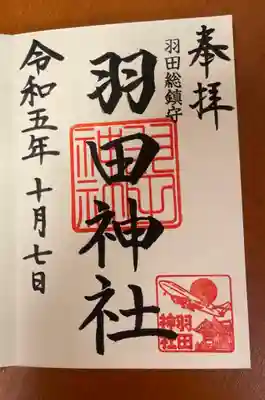 奉拝
羽田総鎮守
羽田神社
令和五年十月七日
羽田
神社
羽田
神社